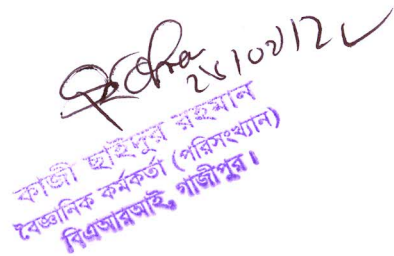 কাজী ছাইদুর রহমান
বৈজ্ঞানিক কর্মকর্তা (পরিসংখ্যান)
বিএআরআই, গাজীপুর।